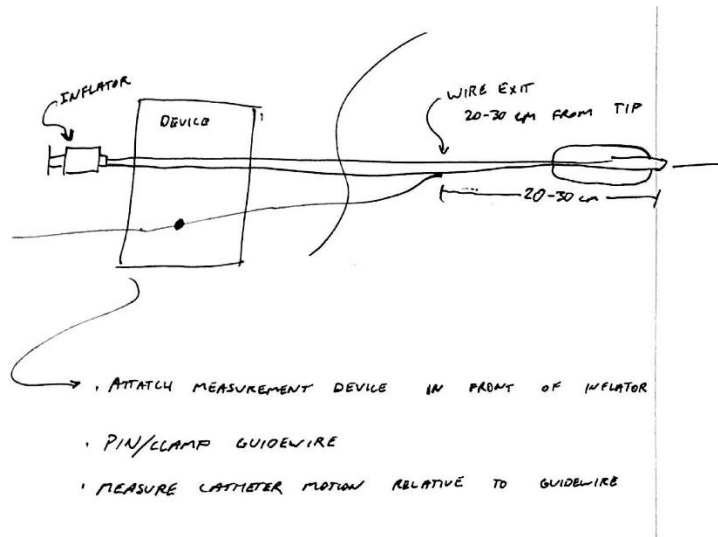 INFLATOR
DEVICE
WIRE EXIT
20-30 cm FROM TIP
20-30 cm
· ATTATCH MEASUREMENT DEVICE IN FRONT OF INFLATOR
· PIN/CLAMP GUIDEWIRE
· MEASURE CATHETER MOTION RELATIVE TO GUIDEWIRE